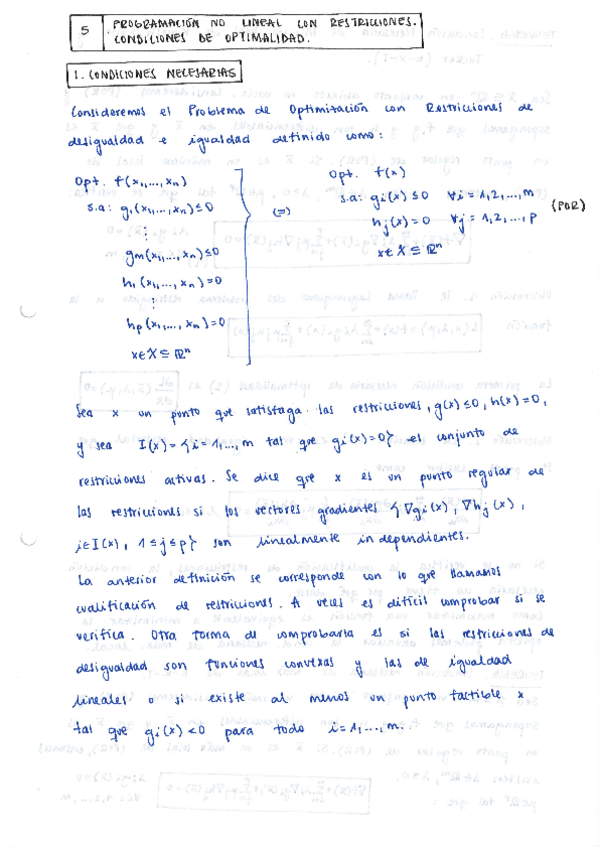 5 PROGRAMACIÓN NO LINEAL CON RESTRICCIONES.
CONDICIONES DE OPTIMALIDAD.
1. CONDICIONES NECESARIAS
Consideremos el Problema de Optimización con Restricciones de
desigualdad e igualdad definido como:
Opt. f(x₁,..., xₙ)
s.a: g₁(x₁,..., xₙ) ≤ 0
⋮
gₘ(x₁,..., xₙ) ≤ 0
h₁(x₁,..., xₙ) = 0
hₚ(x₁,..., xₙ) = 0
x ∈ X ⊆ ℝⁿ
(=)
Opt. f(x)
s.a: gᵢ(x) ≤ 0 ∀i = 1,2,...,m
hⱼ(x) = 0 ∀j = 1,2,...,p (POR)
x ∈ X ⊆ ℝⁿ
Sea x un punto que satisfaga las restricciones, g(x) ≤ 0, h(x) = 0,
y sea I(x) = {i = 1,..., m tal que gᵢ(x) = 0} el conjunto de
restricciones activas. Se dice que x es un punto regular de
las restricciones si los vectores gradientes {∇gᵢ(x), ∇hⱼ(x),
i ∈ I(x), 1 ≤ j ≤ p} son linealmente independientes.
La anterior definición se corresponde con lo que llamamos
cualificación de restricciones. A veces es difícil comprobar si se
verifica. Otra forma de comprobarla es si las restricciones de
desigualdad son funciones convexas y las de igualdad
lineales o si existe al menos un punto factible x
tal que gᵢ(x) < 0 para todo i = 1,..., m.